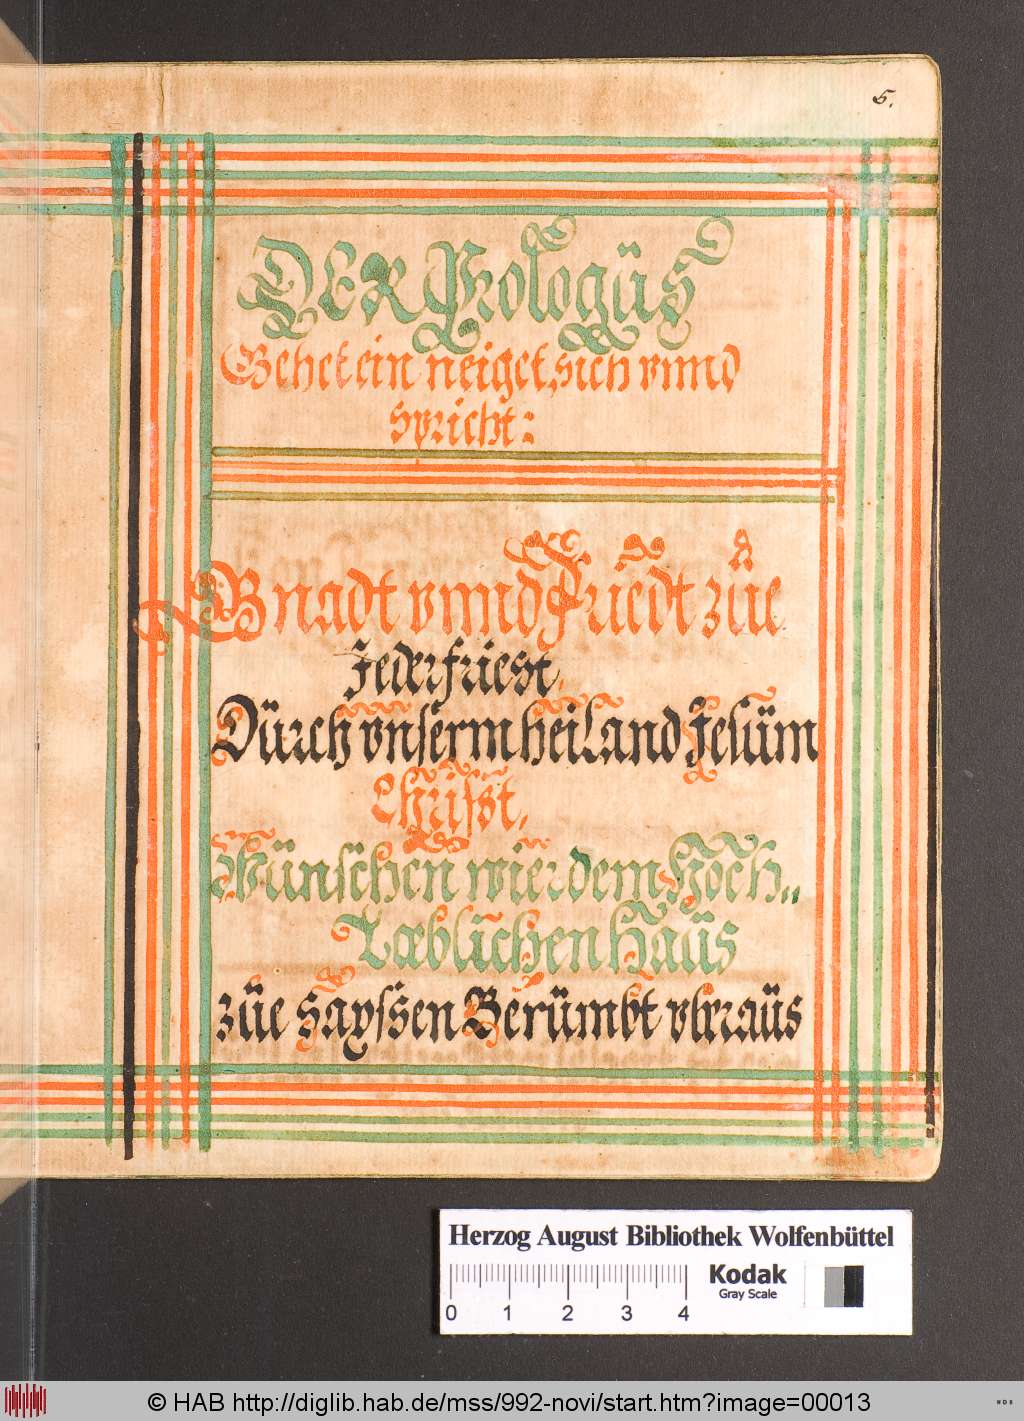 5.
DER Prologüs
Gehet ein neiget sich vnnd
spricht:
Gnadt vnnd Friedt züe
Jeder friest,
Dürch vnserm heiland Jesüm
Christ,
Wünschen wier dem Hoch„
Lœblichen Haüs
züe Sayssen Berümbt vberaüs
Herzog August Bibliothek Wolfenbüttel
Kodak
Gray Scale
0 1 2 3 4
© HAB http://diglib.hab.de/mss/992-novi/start.htm?image=00013